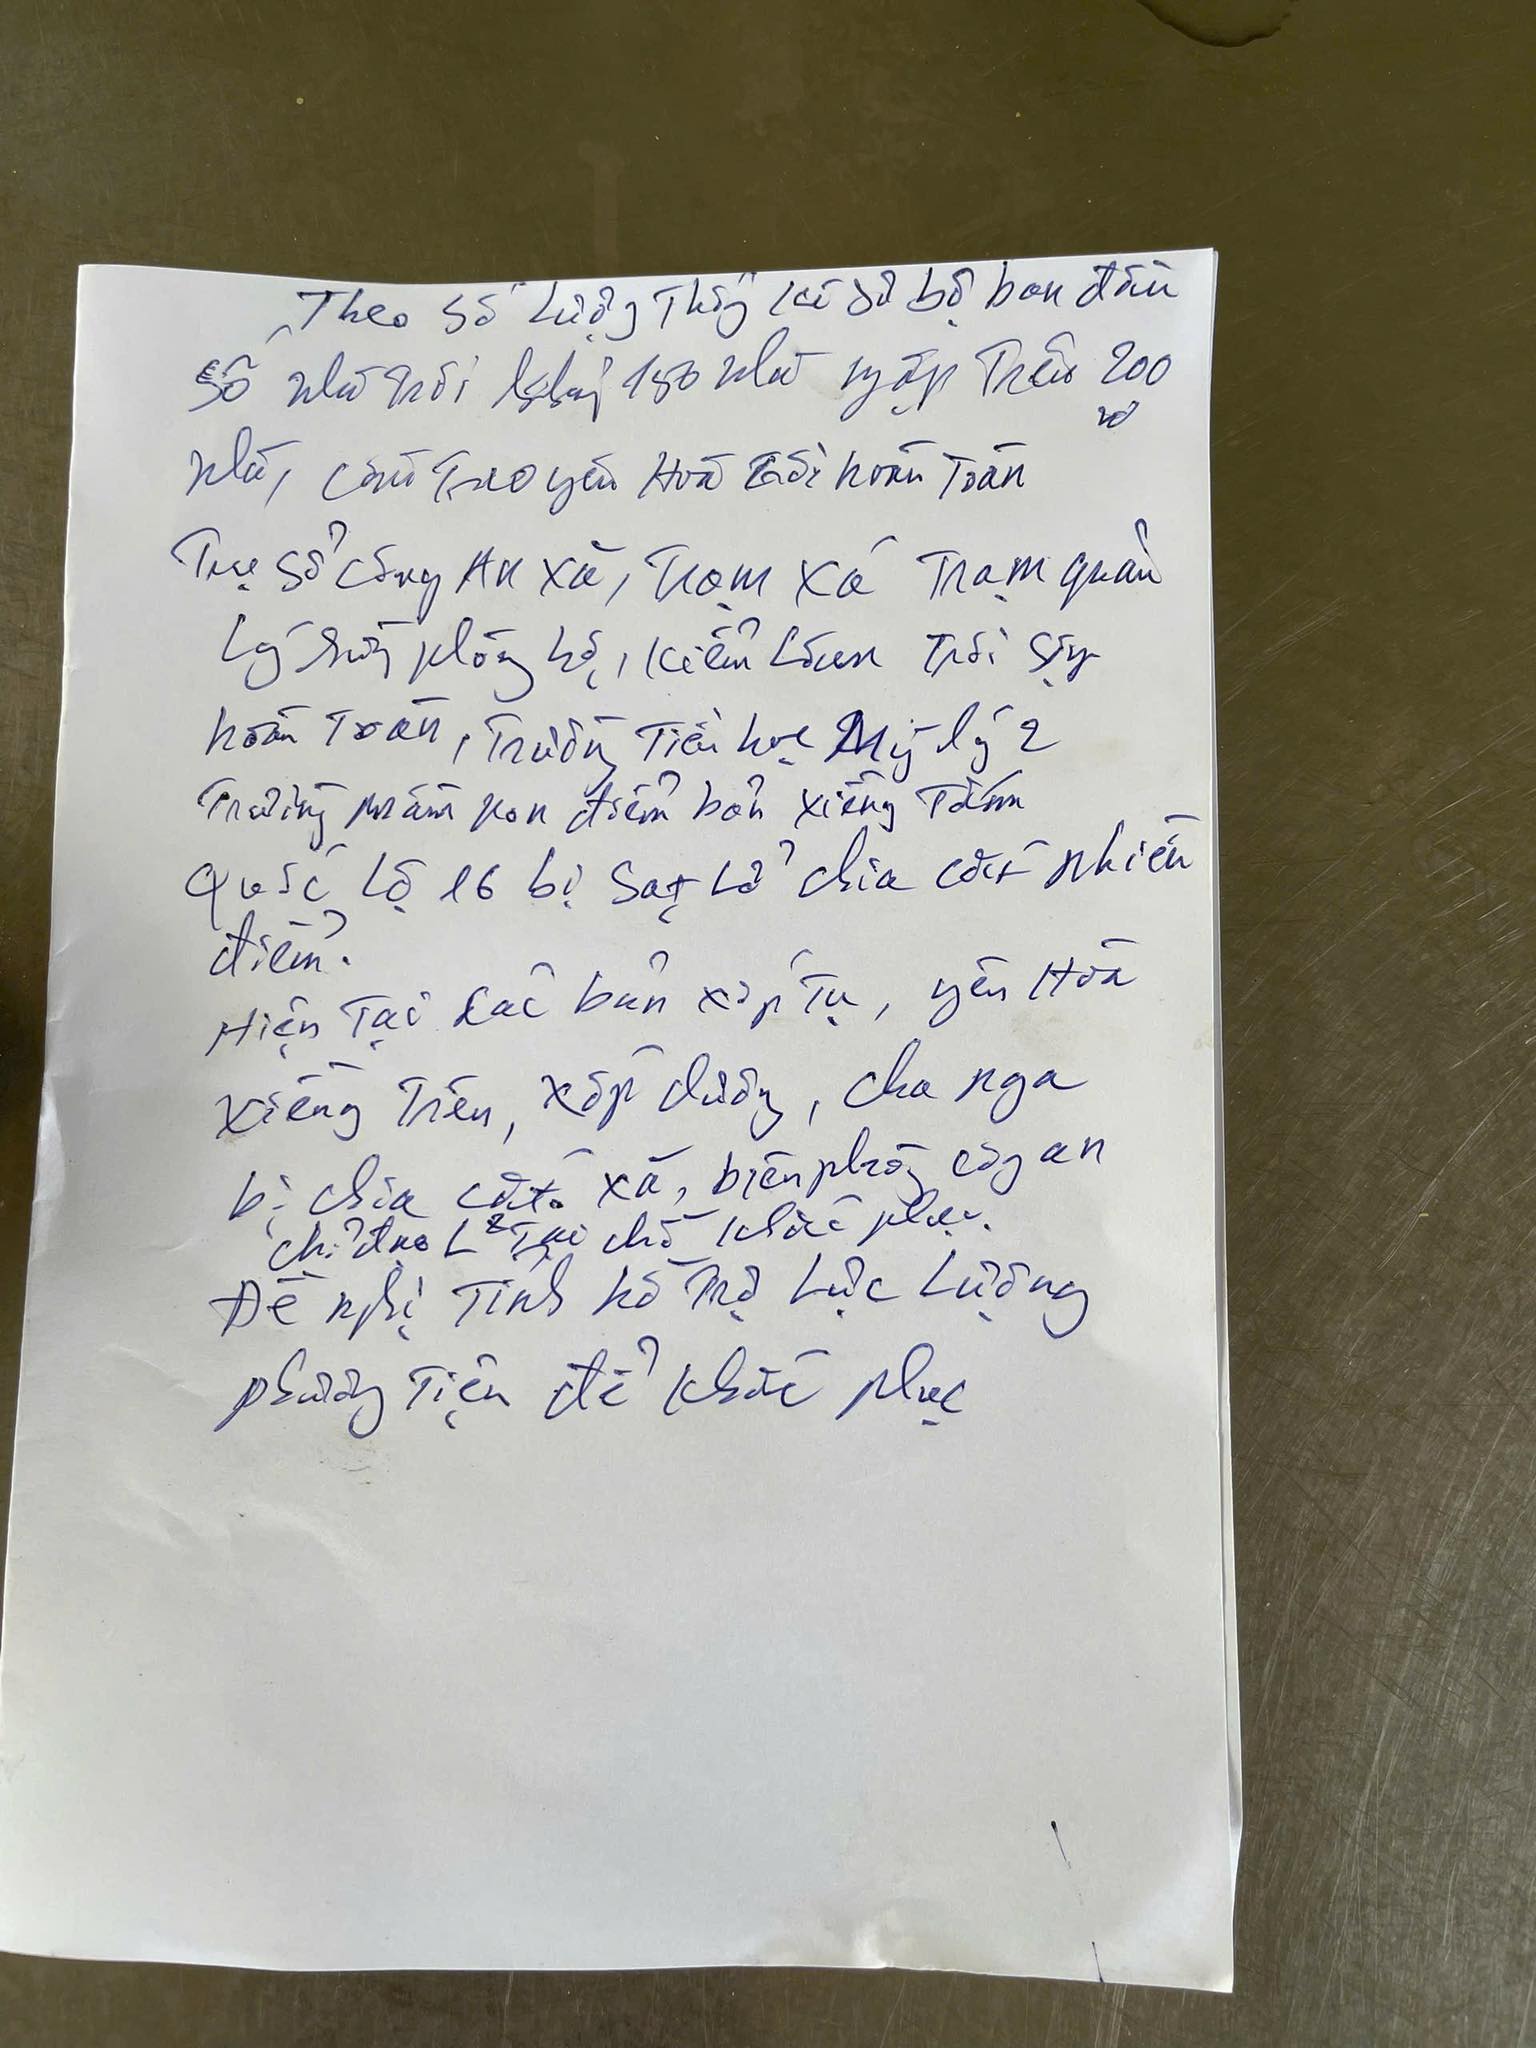 Theo số lượng Thống kê sơ bộ ban đầu
Số nhà trôi 150 nhà ngập Trên 200
nhà, cầu Treo yên Hoà trôi hoàn Toàn
Trụ sở công An xã, Trạm xá Trạm quản
Lý rừng phòng hộ, kiểm Lâm Trôi Sập
hoàn Toàn, Trường Tiểu học Mỹ lý 2
Trường mầm non điểm bản xiềng Tắm
Quốc Lộ 16 bị Sạt Lở chia cắt nhiều
điểm.
Hiện Tại các bản xốp Tụ, yên Hoà
xiềng Trên, xốp dương, cha nga
bị chia cắt xã, biên phòng công an
chỉ đạo L² Tại chỗ khắc phục.
Đề nghị Tỉnh hỗ Trợ Lực Lượng
phương Tiện để khắc phục